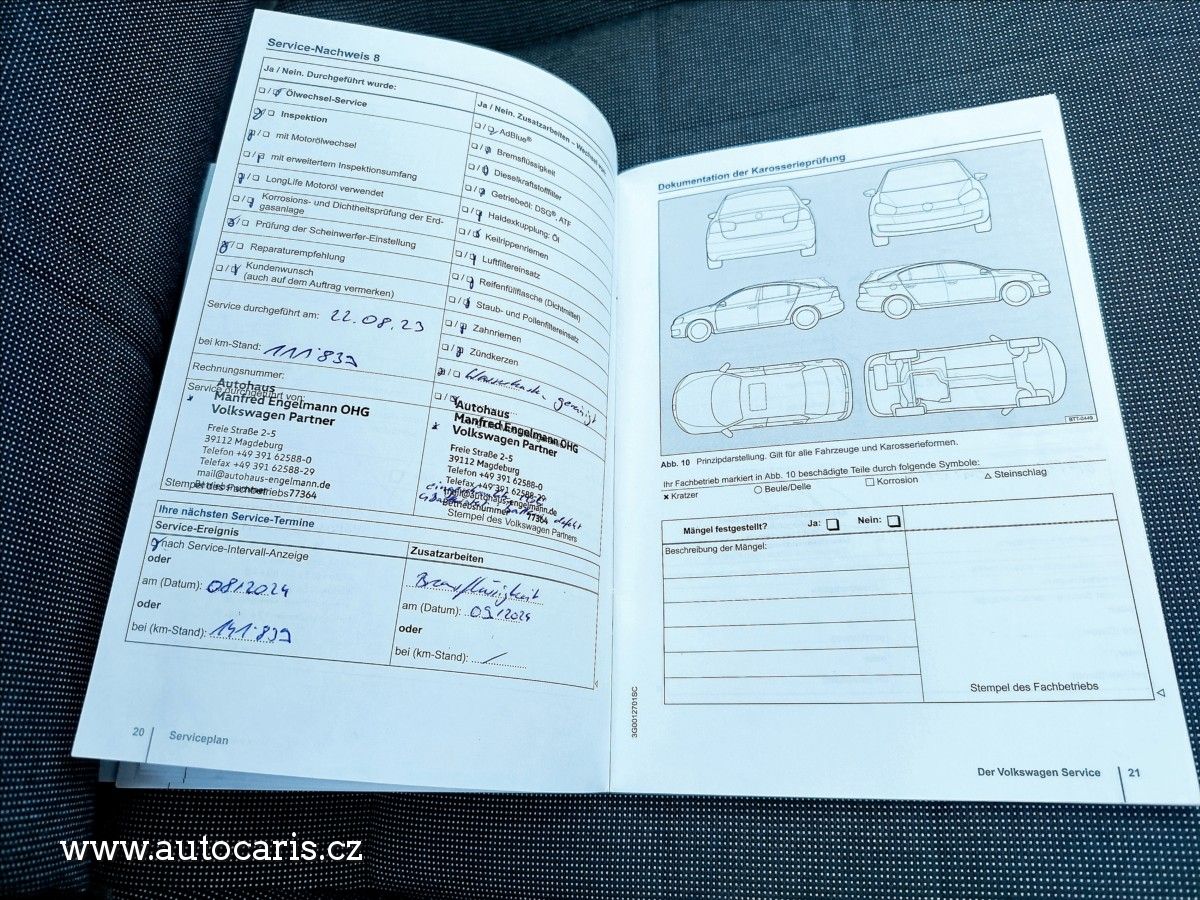 Service-Nachweis 8
Ja / Nein. Durchgeführt wurde:
Ölwechsel-Service
Inspektion
mit Motorölwechsel
mit erweitertem Inspektionsumfang
LongLife Motoröl verwendet
Korrosions- und Dichtheitsprüfung der Erd-
gasanlage
Prüfung der Scheinwerfer-Einstellung
Reparaturempfehlung
Kundenwunsch
(auch auf dem Auftrag vermerken)
Service durchgeführt am: 22.08.23
bei km-Stand: 111.839
Rechnungsnummer:
Service durchgeführt von:
Autohaus
Manfred Engelmann OHG
Volkswagen Partner
Freie Straße 2-5
39112 Magdeburg
Telefon +49 391 62588-0
Telefax +49 391 62588-29
mail@autohaus-engelmann.de
Betriebsnummer 77364
Stempel des Fachbetriebs
Ja / Nein. Zusatzarbeiten – Wechsel
AdBlue®
Bremsflüssigkeit
Dieselkraftstofffilter
Getriebeöl: DSG®, ATF
Haldexkupplung: Öl
Keilrippenriemen
Luftfiltereinsatz
Reifenfüllflasche (Dichtmittel)
Staub- und Pollenfiltereinsatz
Zahnriemen
Zündkerzen
gereinigt
Autohaus
Manfred Engelmann OHG
Volkswagen Partner
Freie Straße 2-5
39112 Magdeburg
Telefon +49 391 62588-0
Telefax +49 391 62588-29
mail@autohaus-engelmann.de
Betriebsnummer 77364
defekt
Stempel des Volkswagen Partners
Ihre nächsten Service-Termine
Service-Ereignis
nach Service-Intervall-Anzeige
oder
am (Datum): 08/2024
oder
bei (km-Stand): 141.839
Zusatzarbeiten
Bremsflüssigkeit
am (Datum): 09/2024
oder
bei (km-Stand): /
20 Serviceplan
Dokumentation der Karosserieprüfung
BTT-0449
Abb. 10 Prinzipdarstellung. Gilt für alle Fahrzeuge und Karosserieformen.
Ihr Fachbetrieb markiert in Abb. 10 beschädigte Teile durch folgende Symbole:
Kratzer Beule/Delle Korrosion Steinschlag
Mängel festgestellt? Ja: Nein:
Beschreibung der Mängel:
Stempel des Fachbetriebs
3G0012701SC
Der Volkswagen Service 21
www.autocaris.cz